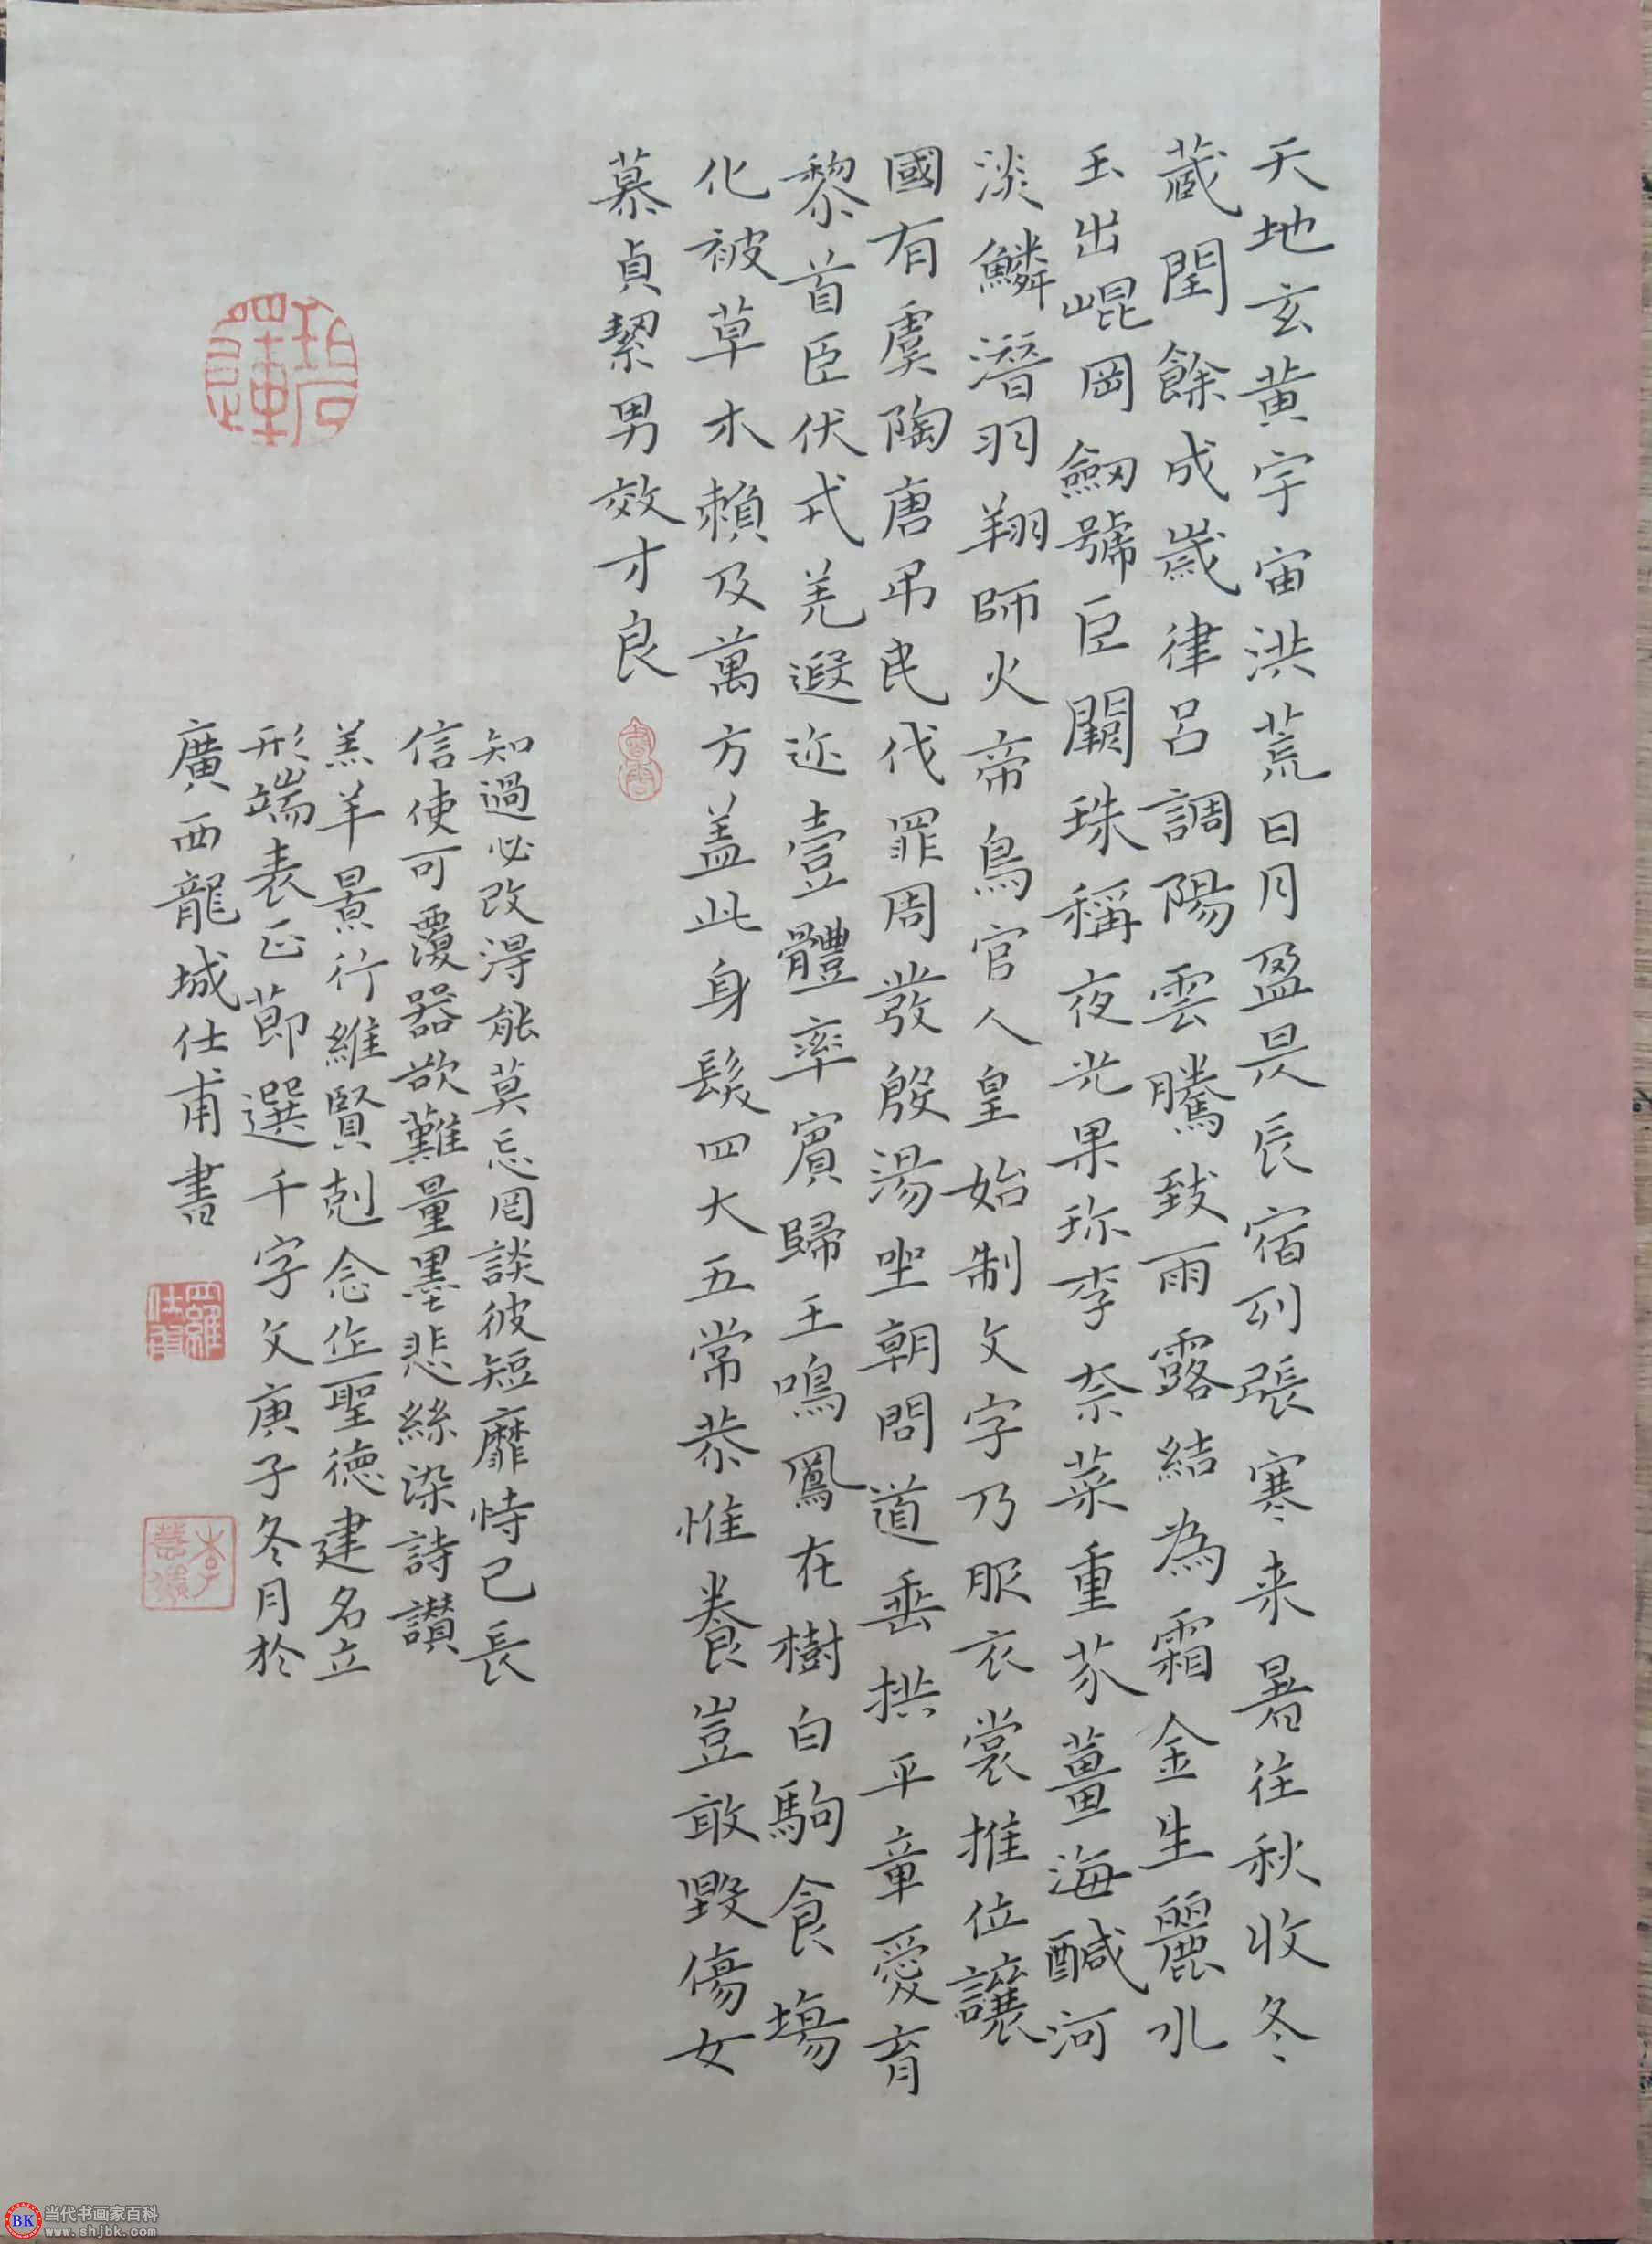 天地玄黄宇宙洪荒日月盈昃辰宿列張寒来暑往秋收冬
蔵閏餘成歲律呂調陽雲騰致雨露結為霜金生麗水
玉出崐岡劒號巨闕珠稱夜光果珎李柰菜重芥薑海醎河
淡鱗潛羽翔師火帝鳥官人皇始制文字乃服衣裳推位讓
國有虞陶唐弔民伐罪周發殷湯坐朝問道垂拱平章愛育
黎首臣伏戎羌遐迩壹體率賓歸王鳴鳳在樹白駒食場
化被草木賴及萬方盖此身髮四大五常恭惟養豈敢毀傷女
慕貞絜男效才良
知過必改得能莫忘罔談彼短靡恃己長
信使可覆器欲難量墨悲絲染詩讚
羔羊景行維賢剋念作聖德建名立
形端表正莭選千字文庚子冬月於
廣西龍城仕甫書
羅仕甫
当代书画家百科
www.shjbk.com
BK